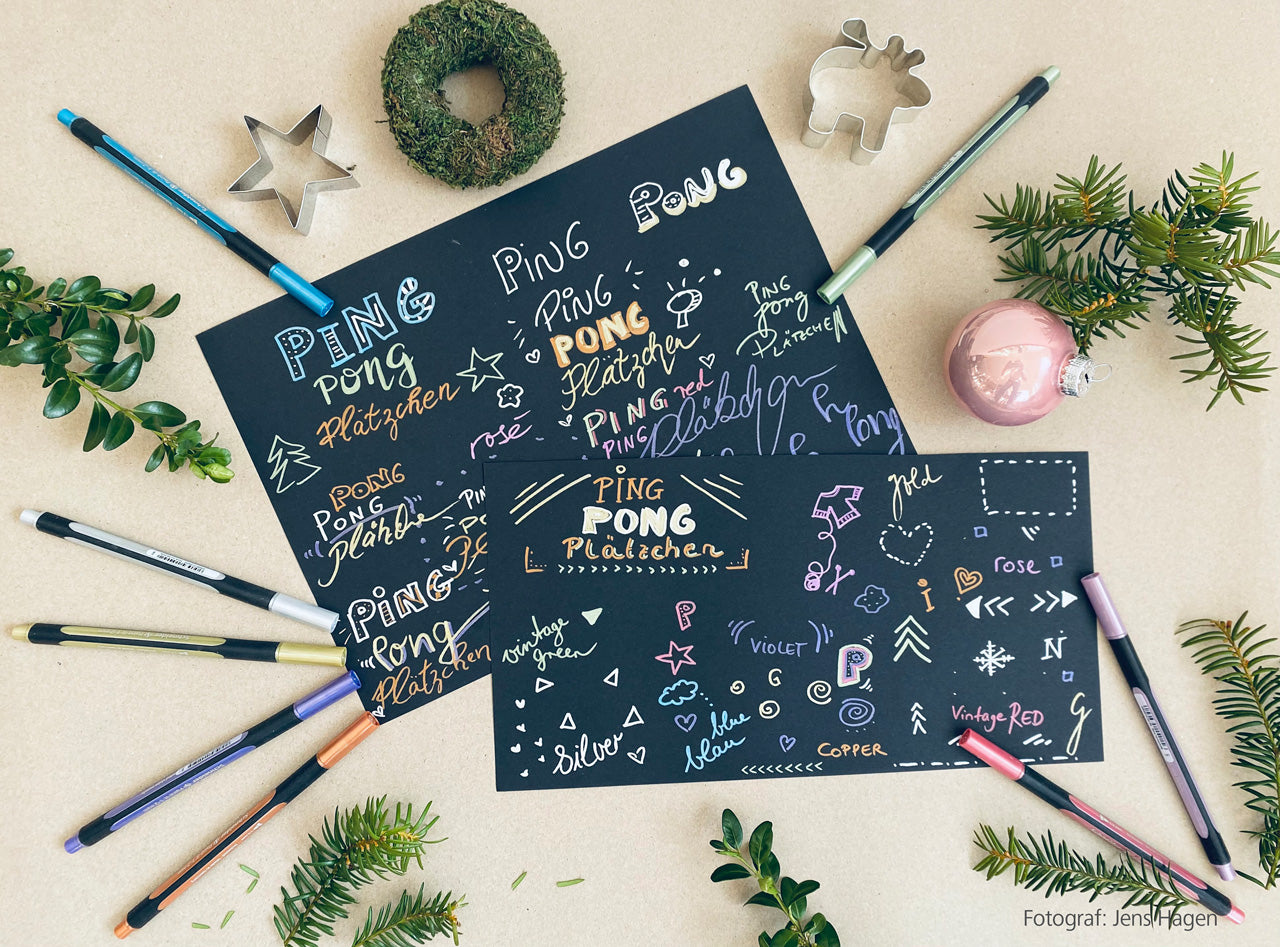 PONG
PING
PING
PING
PONG
PONG
Plätzchen
PING
pong
PLÄTZCHEN
PING
pong
Plätzchen
PING
red
PING
rosé
PONG
PONG
PING
Pong
Plätzchen
PING
PONG
Plätzchen
gold
rose
i
P
vintage
green
VIOLET
P
N
G
Vintage RED
G
blue
blau
Silver
COPPER
Fotograf: Jens Hagen